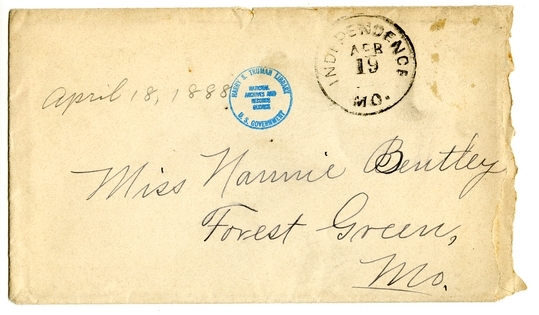 INDEPENDENCE
APR
19
MO.
April 18, 1888
HARRY S. TRUMAN LIBRARY
NATIONAL
ARCHIVES AND
RECORDS
SERVICE
U. S. GOVERNMENT
Miss Nannie Bentley
Forest Green,
Mo.